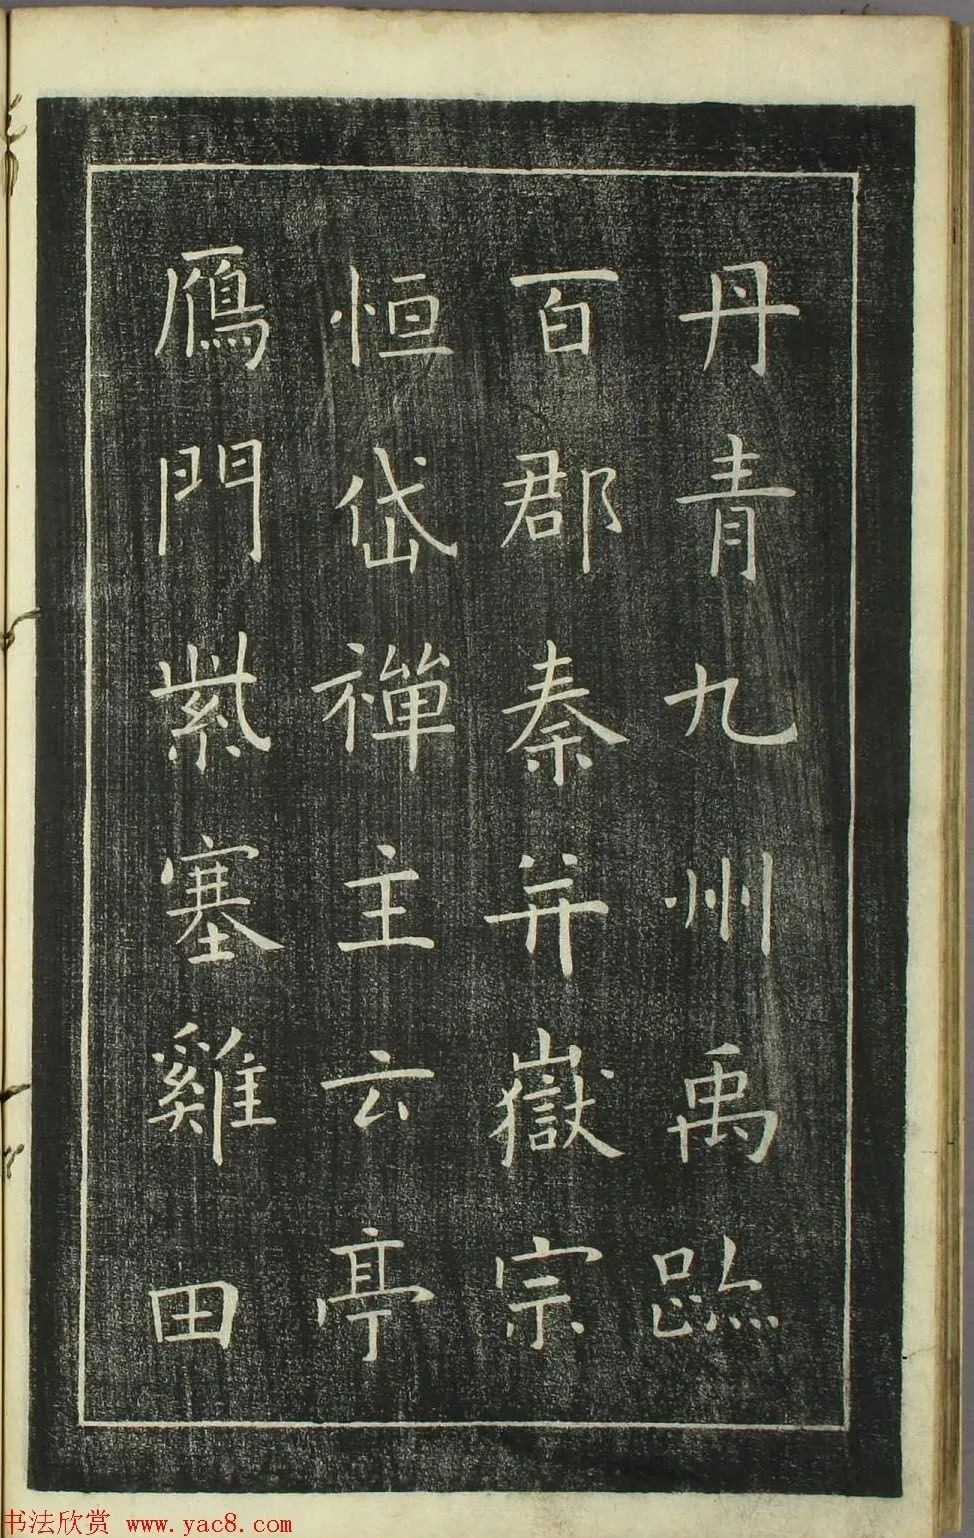 丹青九州禹跡
百郡秦并嶽宗
恒岱禪主云亭
鴈門紫塞雞田
书法欣赏 www.yac8.com